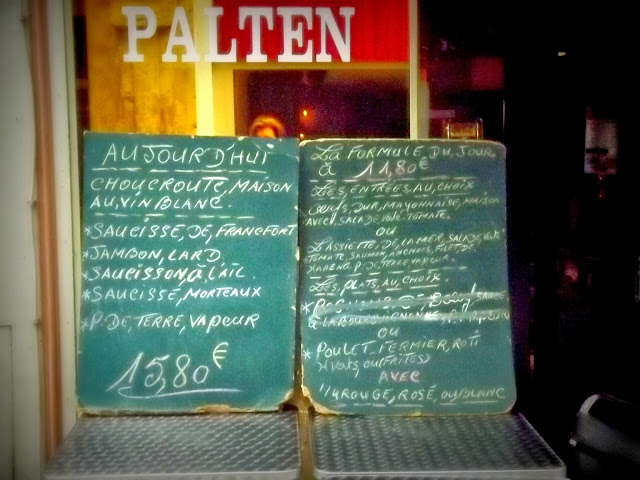 PALTEN
AUJOURD'HUI
CHOUCROUTE, MAISON
AU, VIN BLANC.
*SAUCISSE, DE, FRANCFORT
*JAMBON, LARD
*SAUCISSON, À L'AIL.
*SAUCISSE, MORTEAUX
*P. DE, TERRE, VAPEUR
15,80€
LA FORMULE DU, JOUR,
à 11,80€
LES, ENTRÉES, AU, CHOIX
OEUFS, DUR, MAYONNAISE, MAISON
AVEC, SALADE TOMATE.
OU
L'ASSIETTE, DE, LA MER, SALADE
TOMATE, SAUMON, ANCHOIS, FILET, DE,
HARENG, P. DE, TERRE, VAPEUR.
LES, PLATS, AU, CHOIX
SAUCE
à LA BOURGUIGNONNE
OU
*POULET, FERMIER, ROTI
H. VERTS, OU (FRITES)
AVEC
1/4 ROUGE, ROSÉ, OU BLANC